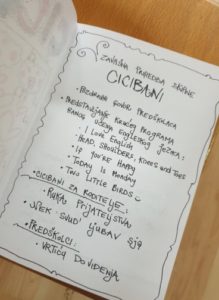 ZAVRŠNA PRIREDBA SKUPINE
CICIBANI
• POZDRAVNI GOVOR PREDŠKOLACA
• PREDSTAVLJANJE KRAĆEG PROGRAMA
RANOG UČENJA ENGLESKOG JEZIKA:
• I LOVE ENGLISH
• HEAD, SHOULDERS, KNEES AND TOES
• IF YOU'RE HAPPY
• TODAY IS MONDAY
• TWO LITTLE BIRDS
• CICIBANI ZA RODITELJE:
• RUKA PRIJATELJSTVA
• NEK SVUD LJUBAV SJA
• PREDŠKOLCI:
• VRTIĆU DOVIĐENJA